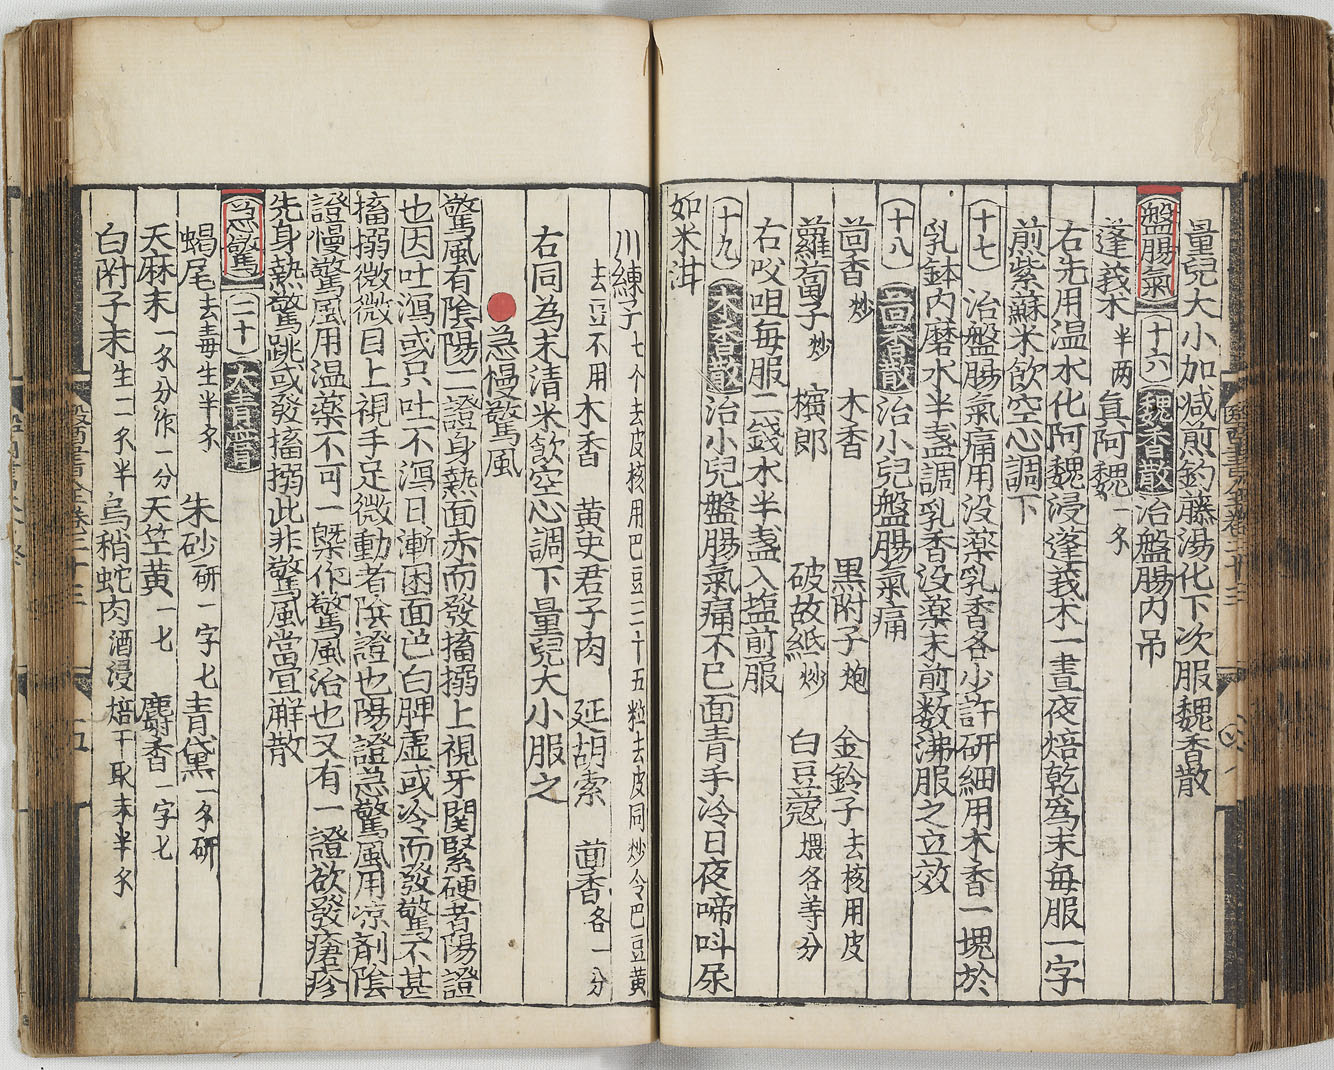 量兒大小加減煎釣藤湯化下次服魏香散
盤腸氣 十六 魏香散 治盤腸內吊
蓬莪朮半两 真阿魏一匁
右先用温水化阿魏浸蓬莪朮一晝夜焙乾爲末每服一字
煎紫蘇米飲空心調下
十七 治盤腸氣痛用没藥乳香各少許研細用木香一塊於
乳鉢內磨水半盞調乳香没藥末煎数沸服之立效
十八 茴香散 治小兒盤腸氣痛
茴香炒 木香 黒附子炮 金鈴子去核用皮
蘿蔔子炒 檳郎 破故紙炒 白豆蔻煨各等分
右㕮咀每服二錢水半盞入塩煎服
十九 木香散 治小兒盤腸氣痛不已面青手冷日夜啼呌尿
如米泔
川練子七个去皮核用巴豆二十五粒去皮同炒令巴豆黄
去豆不用 木香 黄史君子肉 延胡索 茴香各一分
右同為末清米飲空心調下量兒大小服之
急慢驚風
驚風有陰陽二證身熱面赤而發搐搦上視牙関緊硬者陽證
也因吐瀉或只吐不瀉日漸困面色白脾虚或冷而發驚不甚
搐搦微微目上視手足微動者陰證也陽證急驚風用凉剤陰
證慢驚風用温藥不可一槩作驚風治也又有一證欲發瘡疹
先身熱驚跳或發搐搦此非驚風當宜觧散
急驚 二十 大青膏
蝎尾去毒生半匁 朱砂研一字七 青黛一匁研
天麻末一匁分作一分 天竺黄一七 麝香一字七
白附子末生二匁半 烏稍蛇肉酒浸焙干取末半匁